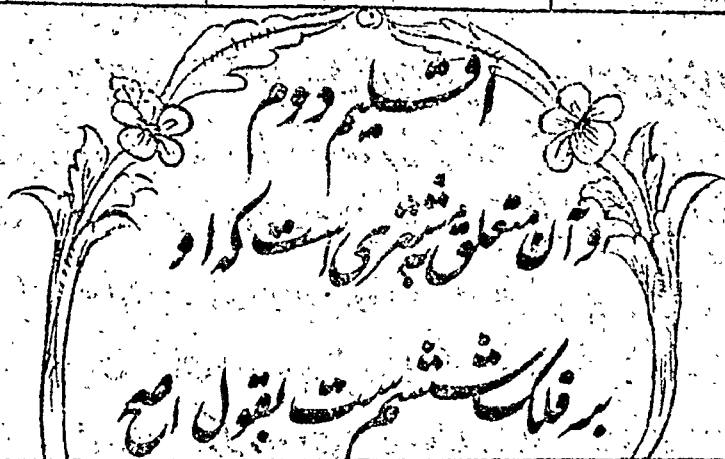 اقلیم دوم
وآن متعلق بمشتری است که او
بر فلک ششم ست بقول اصح